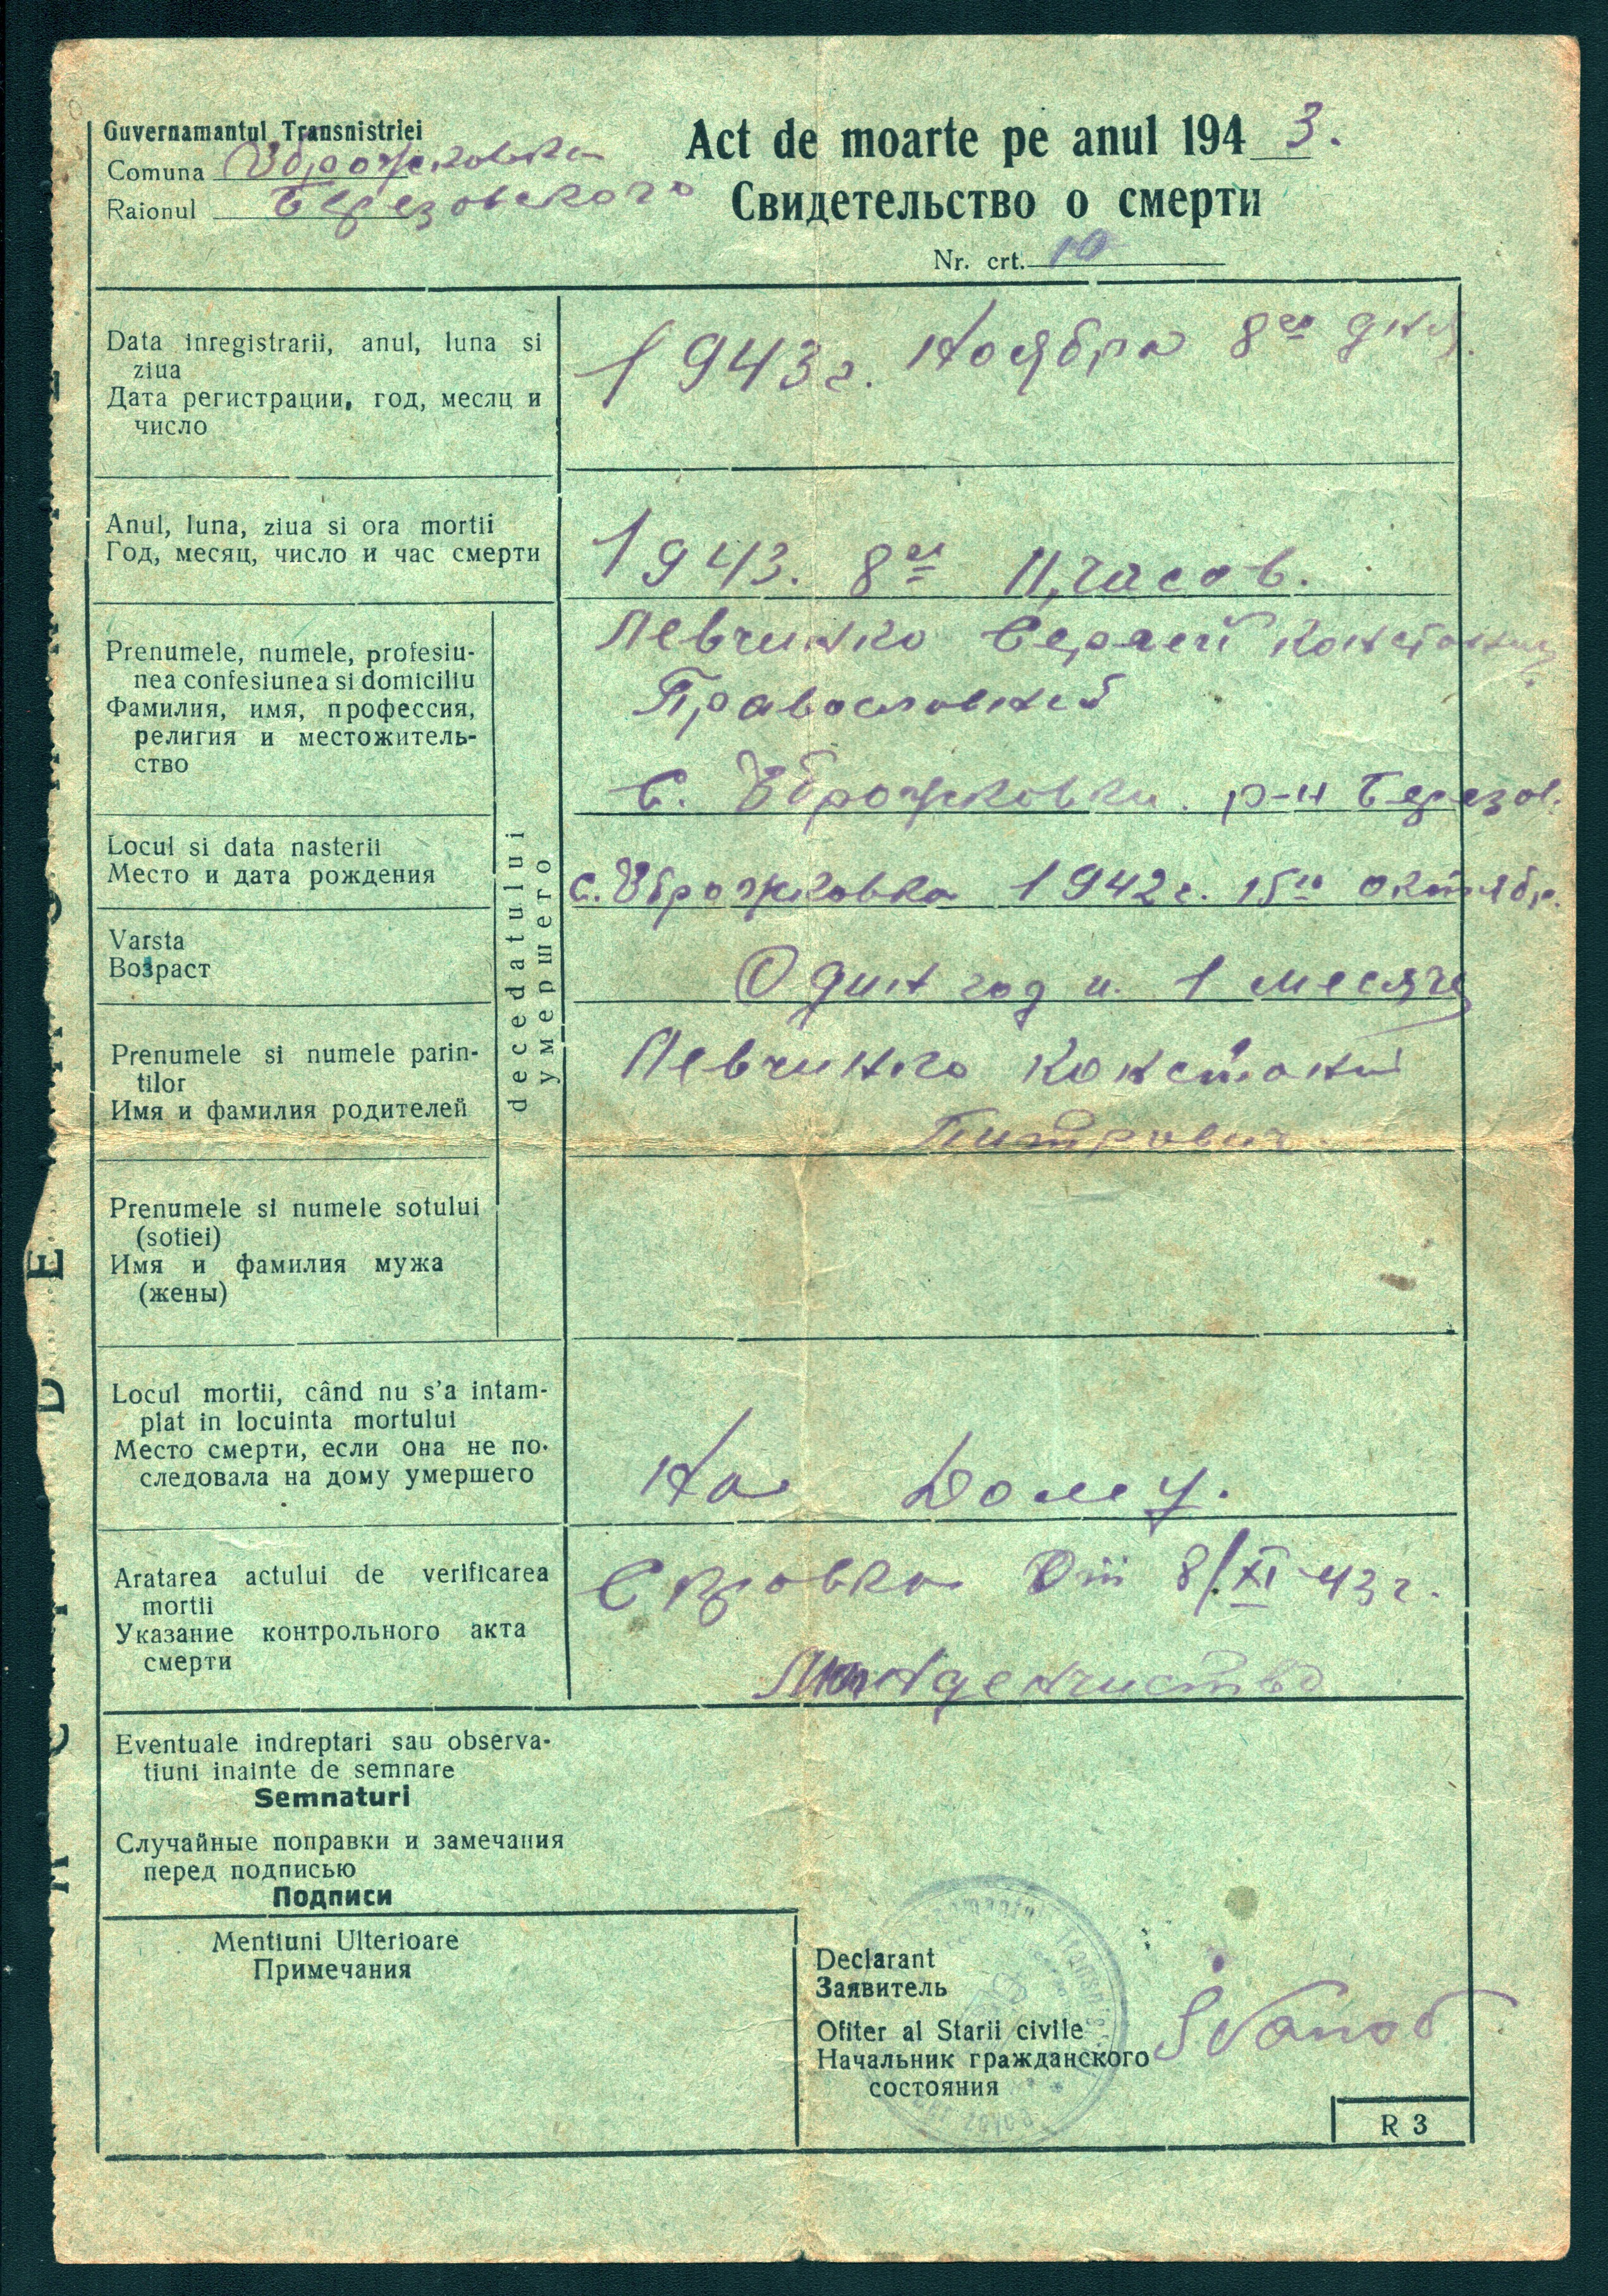 Guvernamantul Transnistriei
Comuna
Raionul Березовского
Act de moarte pe anul 194 3.
Свидетельство о смерти
Nr. crt. 10
Data inregistrarii, anul, luna si
ziua
Дата регистрации, год, месяц и
число
1943 г. Ноября 8го дня.
Anul, luna, ziua si ora mortii
Год, месяц, число и час смерти
1943. 8го 11, часов.
decedatului
умершего
Prenumele, numele, profesiu-
nea confesiunea si domiciliu
Фамилия, имя, профессия,
религия и местожитель-
ство
Левчинко Сергей
Православней
С. р-н Березов.
Locul si data nasterii
Место и дата рождения
с. 1942 г. 15го октябр.
Varsta
Возраст
Один год и. 1 месяц
Prenumele si numele parin-
tilor
Имя и фамилия родителей
Левчинко Констант
Питрович.
Prenumele si numele sotului
(sotiei)
Имя и фамилия мужа
(жены)
Locul mortii, când nu s'a intam-
plat in locuinta mortului
Место смерти, если она не по-
следовала на дому умершего
На Дому.
Aratarea actului de verificarea
mortii
Указание контрольного акта
смерти
От 8/XI-43 г.
Eventuale indreptari sau observa-
tiuni inainte de semnare
Semnaturi
Случайные поправки и замечания
перед подписью
Подписи
Mentiuni Ulterioare
Примечания
Declarant
Заявитель
Ofiter al Starii civile
Начальник гражданского
состояния
Ivanov
R 3